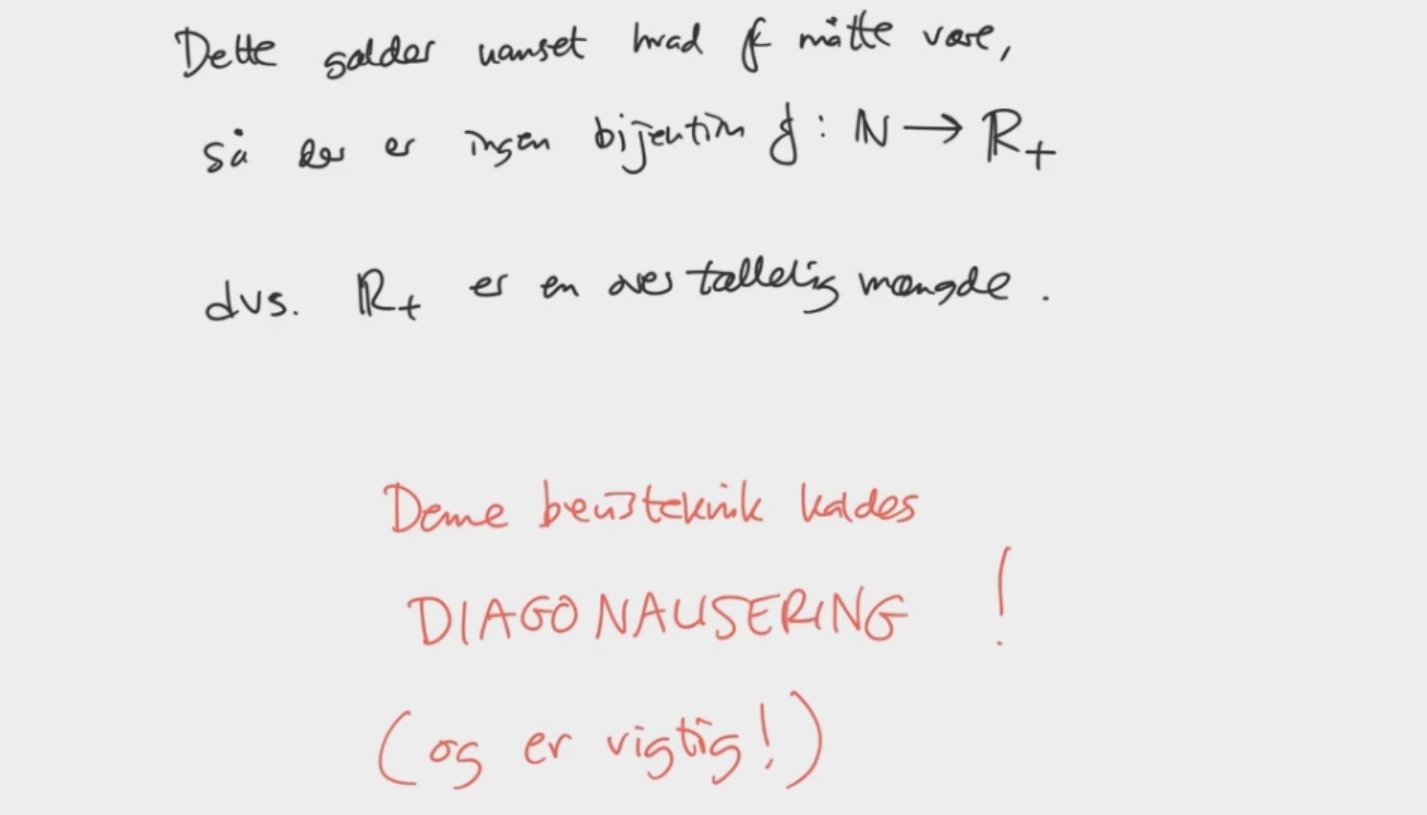 Dette gælder uanset hvad f måtte være,
så der er ingen bijektion f : ℕ → ℝ₊
dvs. ℝ₊ er en overtællelig mængde.
Denne bevisteknik kaldes
DIAGONALISERING !
(og er vigtig!)